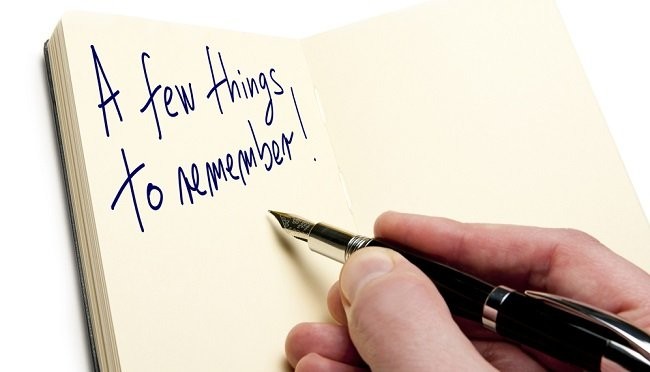 A few things
to remember!